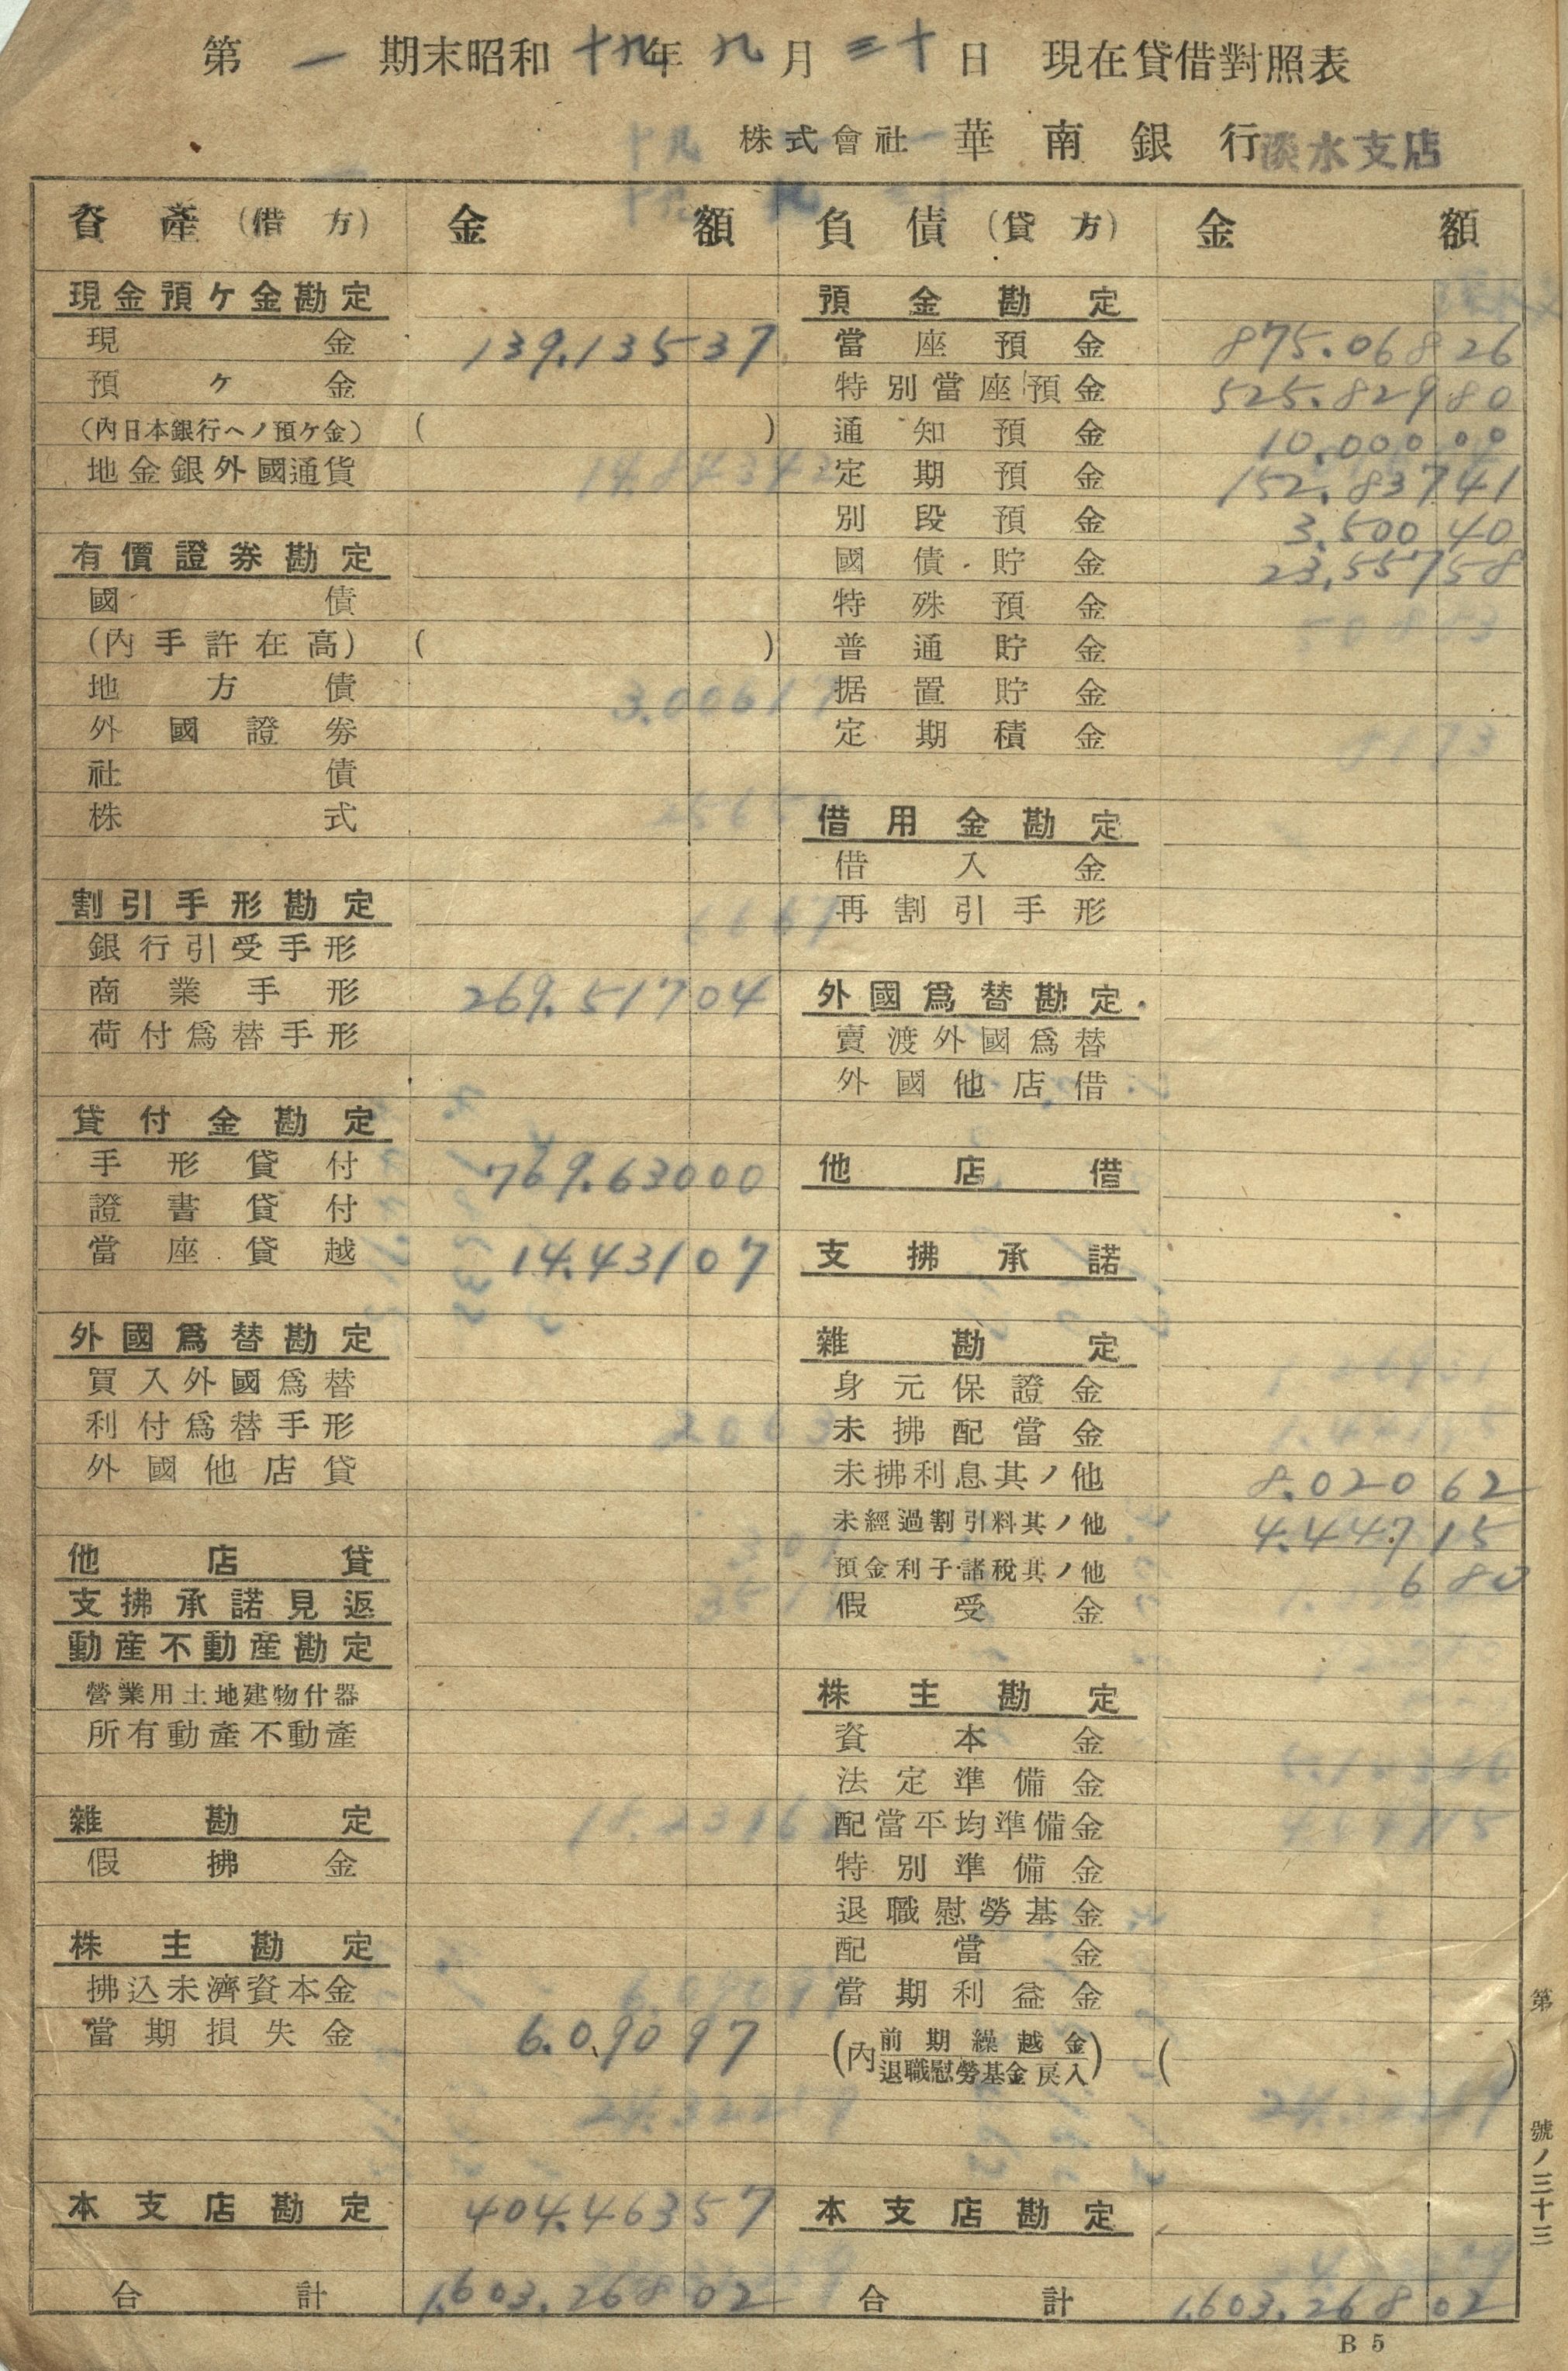 第 一 期末昭和 十九年 九月 三十日 現在貸借對照表
株式會社 華南銀行 淡水支店
資產(借方) 金額 負債(貸方) 金額
現金預ケ金勘定
現金 139.135 37
預ケ金
(內日本銀行ヘノ預ケ金) ( )
地金銀外國通貨
有價證券勘定
國債
(內手許在高) ( )
地方債
外國證券
社債
株式
割引手形勘定
銀行引受手形
商業手形 269.517 04
荷付爲替手形
貸付金勘定
手形貸付 769.630 00
證書貸付
當座貸越 14.431 07
外國爲替勘定
買入外國爲替
利付爲替手形
外國他店貸
他店貸
支拂承諾見返
動產不動產勘定
營業用土地建物什器
所有動產不動產
雜勘定
假拂金
株主勘定
拂込未濟資本金
當期損失金 6.090 97
本支店勘定 404.463 57
合計 1.603.268 02
預金勘定
當座預金 875.068 26
特別當座預金 525.829 80
通知預金 10.000 00
定期預金 152.837 41
別段預金 3.500 40
國債貯金 23.557 58
特殊預金
普通貯金
据置貯金
定期積金
借用金勘定
借入金
再割引手形
外國爲替勘定
賣渡外國爲替
外國他店借
他店借
支拂承諾
雜勘定
身元保證金
未拂配當金
未拂利息其ノ他 8.020 62
未經過割引料其ノ他 4.447 15
預金利子諸稅其ノ他 6 80
假受金
株主勘定
資本金
法定準備金
配當平均準備金
特別準備金
退職慰勞基金
配當金
當期利益金
(內前期繰越金
退職慰勞基金戾入) ( )
本支店勘定
合計 1.603.268 02
第 號ノ三十三
B 5